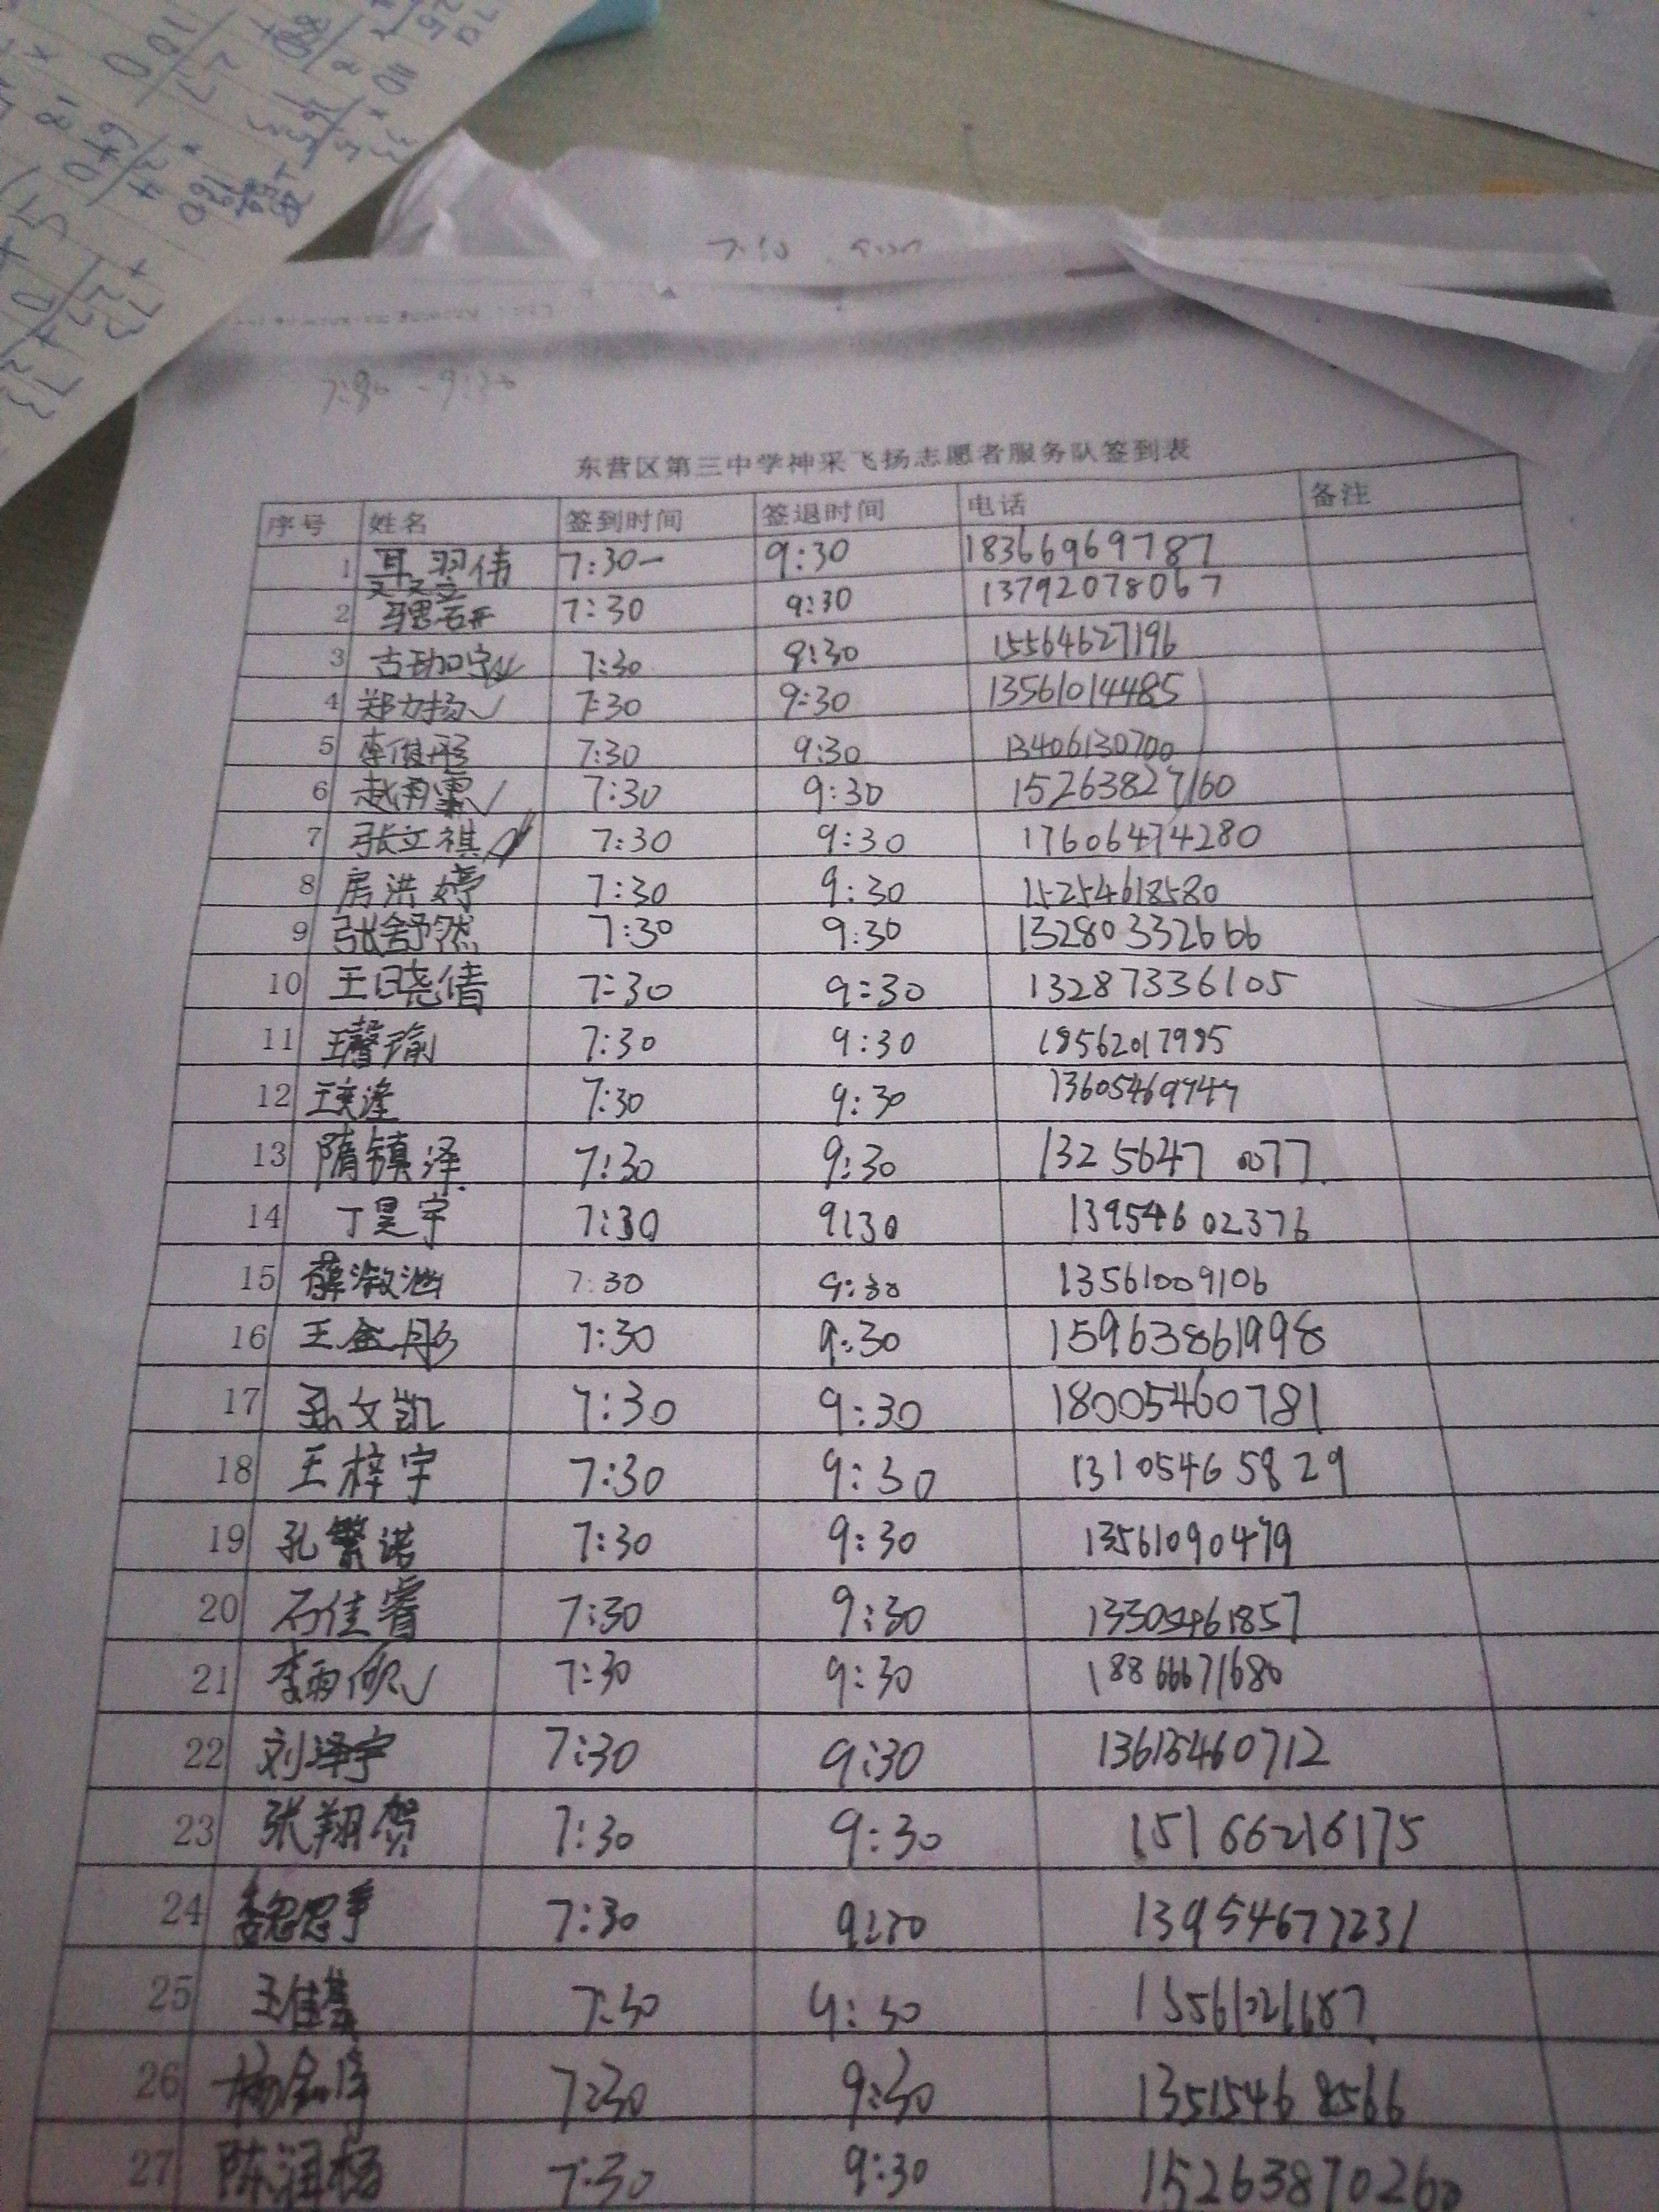 7:30 9:00
7:30 - 9:30
东营区第三中学神采飞扬志愿者服务队签到表
序号 姓名 签到时间 签退时间 电话 备注
1 羽伟 7:30- 9:30 18366969787
2 7:30 9:30 13792078067
3 7:30 9:30 15564627196
4 郑力扬 7:30 9:30 13561014485
5 李俊彤 7:30 9:30 13406130700
6 赵雨 7:30 9:30 15263827160
7 张文祺 7:30 9:30 17606474280
8 房洪婷 7:30 9:30 15254618580
9 张舒然 7:30 9:30 13280332666
10 王晓倩 7:30 9:30 13287336105
11 王馨瑜 7:30 9:30 18562017985
12 7:30 9:30
13 隋镇泽 7:30 9:30 1325647 0077
14 丁昊宇 7:30 9:30 13954602376
15 薛淑 7:30 9:30 13561009106
16 王金彤 7:30 9:30 15963861998
17 孙文凯 7:30 9:30 18005460781
18 王梓宇 7:30 9:30 13105465829
19 孔繁诺 7:30 9:30 13561090479
20 石佳睿 7:30 9:30 13305461857
21 李雨 7:30 9:30 18866671680
22 刘泽宇 7:30 9:30 13615460712
23 张翔贺 7:30 9:30 15166216175
24 7:30 9:30 13954677231
25 王佳 7:30 9:30 13561021687
26 杨 7:30 9:30 13515468566
27 陈润杨 7:30 9:30 15263870260